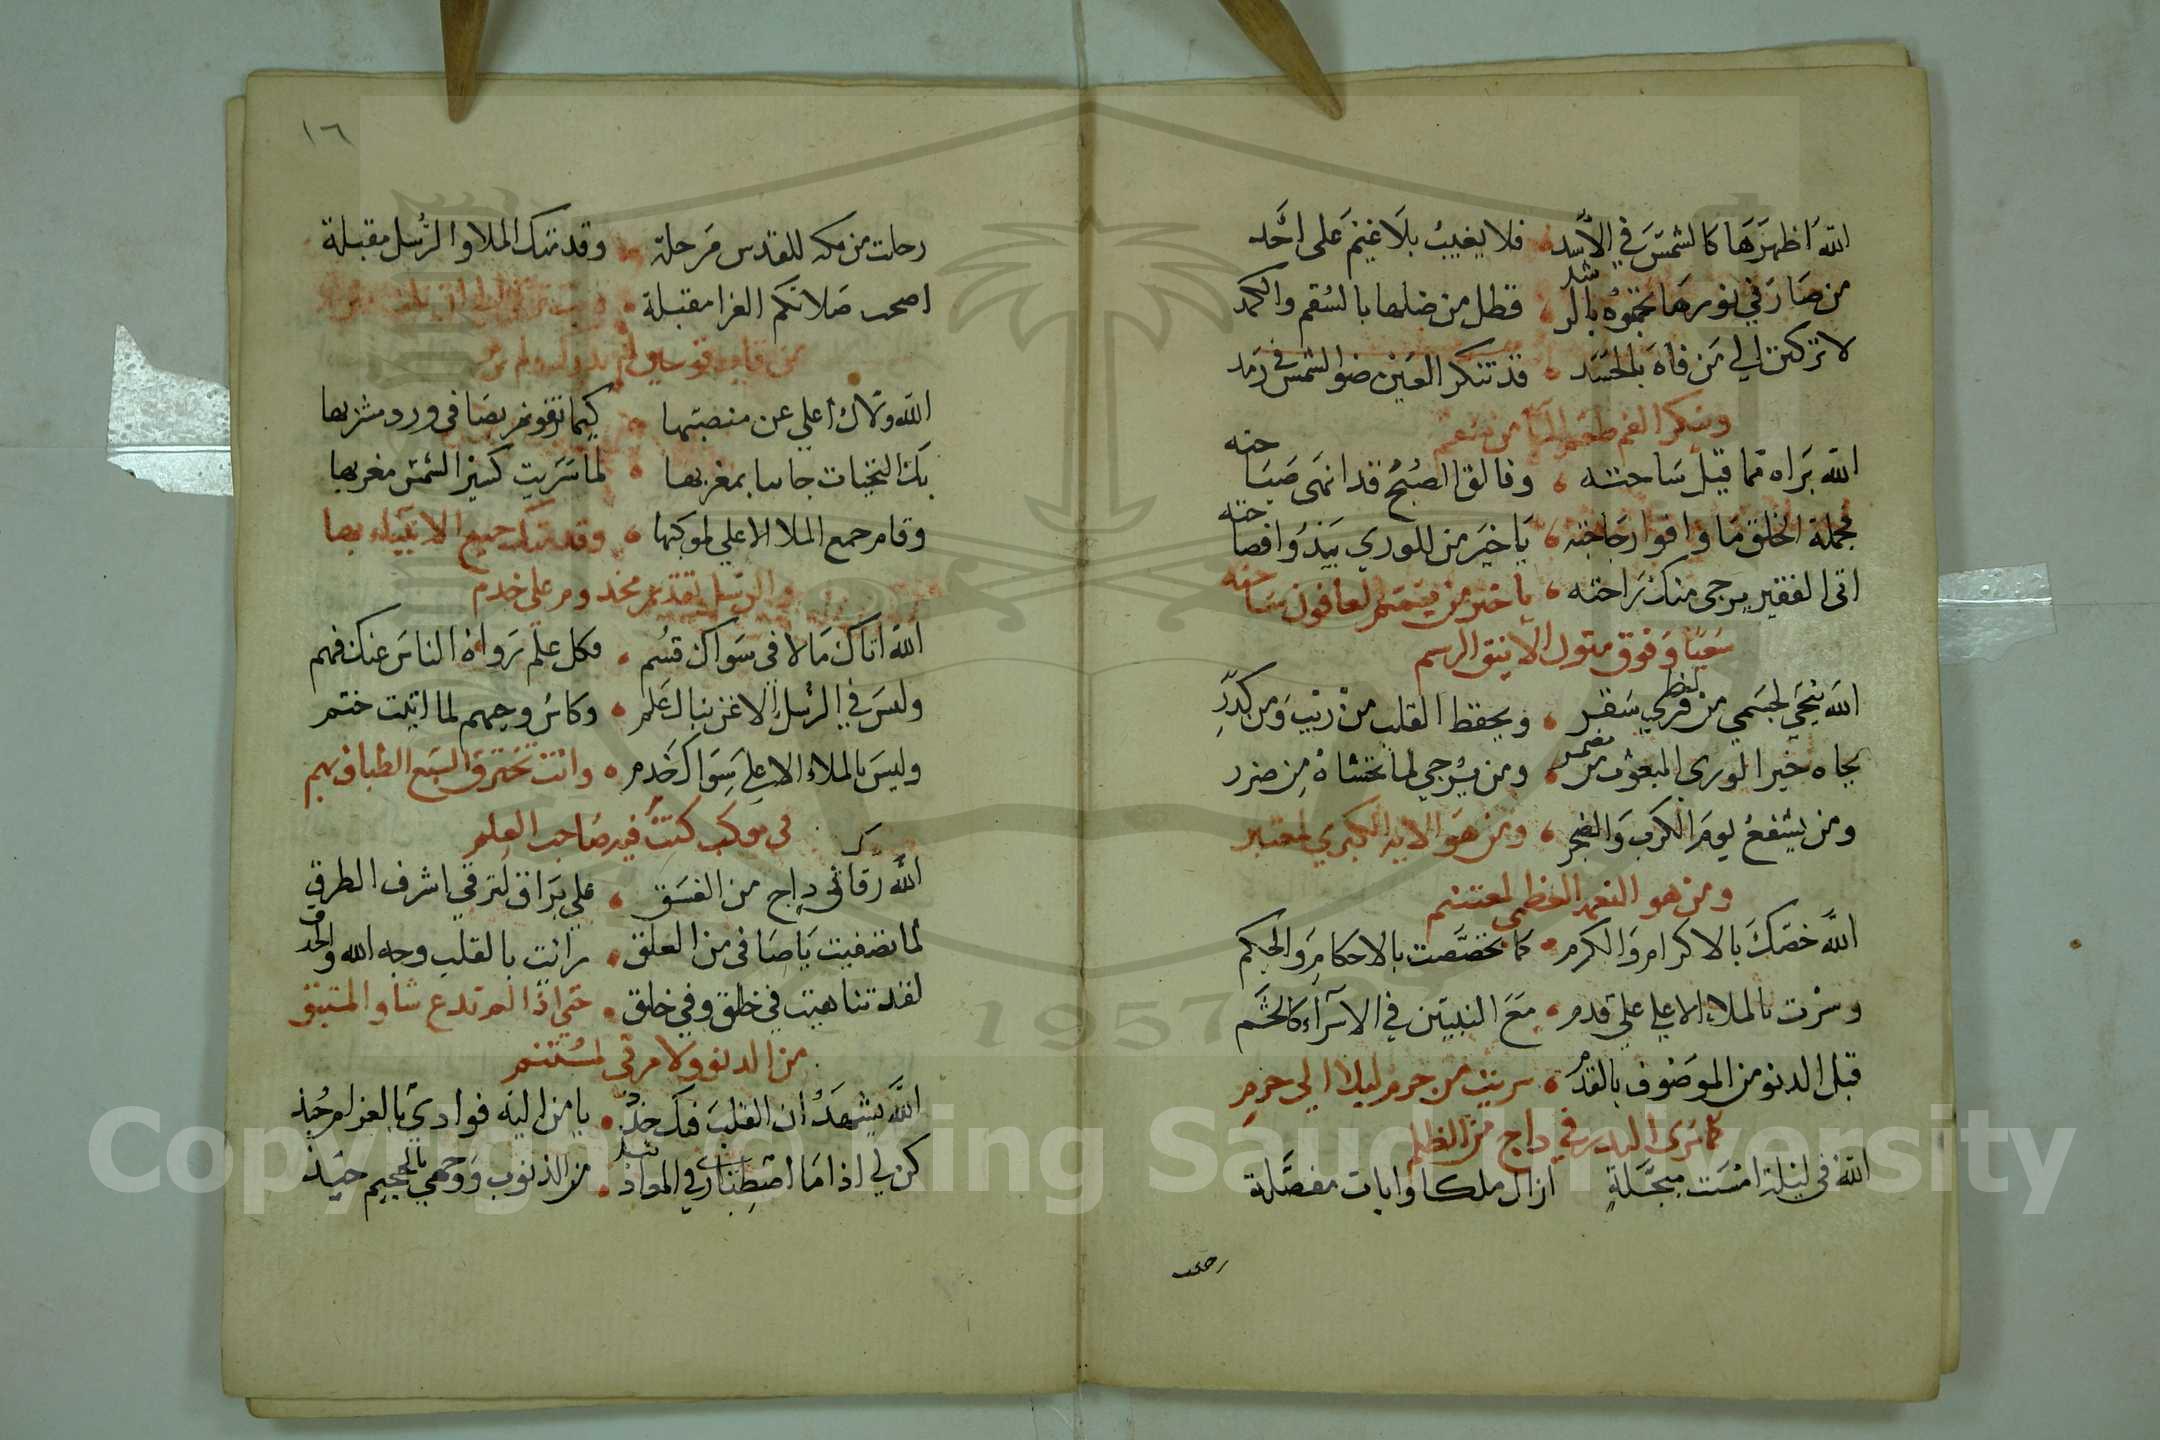 الله اظهرها كالشمس في الأسد فلا يغيب بلا غيم على احد
من صار في نورها نحموه بالرشد قطل من ضلها بالسقم والكمد
لا تركنن الي من فاه بالحسد قد تنكر العين ضو الشمس في رمد
وينكر الفم طعم الماء من سقم
الله براه مما قيل ساحته وفالق الصبح قد انهى صباحته
بجملة الخلق ما وافوا رجاحته يا خير من للوري يبذوا فصاحته
اتى الفقير يرجى منك راحته يا خير من يمم العافون ساحته
سعيا وفوق متون الاينق الرسم
الله ينجي لجسمي من لظي سقر ويحفظ القلب من ريب ومن كدر
بجاه خير الوري المبعوث من مضر ومن يرجي لما نخشاه من ضرر
ومن يشفع يوم الكرب والضجر ومن هو الاية الكبري لمعتبر
ومن هو النعمة العظمى لمغتنم
الله خصك بالاكرام والكرم كما تخصصت بالاحكام والحكم
وسرت بالملاء الاعلي على قدم مع النبيين في الاسرآء كالحشم
قبل الدنو من الموصوف بالقدم سريت من حرم ليلا الي حرم
كما سرى البدر في داج من الظلم
الله في ليلة امست مبجلة ازال ملكا وايات مفصلة
رحلت
١٦
رحلت من مكه للقدس مرحلة وقد تنك الملا والرسل مقبلة
اصحت صلاتكم الغرا مقبلة وبت ترقى الى ان نلت منزلة
من قاب قوسين لم تدرك ولم ترم
الله ولاك أعلي عن منصبها كيما تفو نريصا في ورد مشربها
بك النجيات جاسا بمغربها لما سريت كسير الشمس مغربها
وقام جمع الملا الاعلي لموكبها وقدمتك جميع الانبياء بها
والرسل تقديم مخدوم على خدم
الله اتاك ما لا في سواك قسم وكل علم رواه الناس عنك فهم
وليس في الرسل الا غر بنال علم وكاس وحيهم لما اتيت ختم
وليس بالملاء الاعلي سواك خدم وانت تخترق السبع الطباق بهم
في موكب كنت فيه صاحب العلم
الله رقاك في داج من الغسق علي براق لترقي اشرف الطرق
لما تصفيت يا صافى من العلق رأيت بالقلب وجه الله والحدق
لقد تناهيت في خلق وفي خلق حتى اذا لم تدع شأوا لمستبق
من الدنو ولا مرقى لمستنم
الله يشهد ان القلب فك خذ يا من اليه فوادي بالغرام جبذ
كن لي اذا ما اشطنار في المعاد من الذنوب ووجهي بالجحيم حنيذ